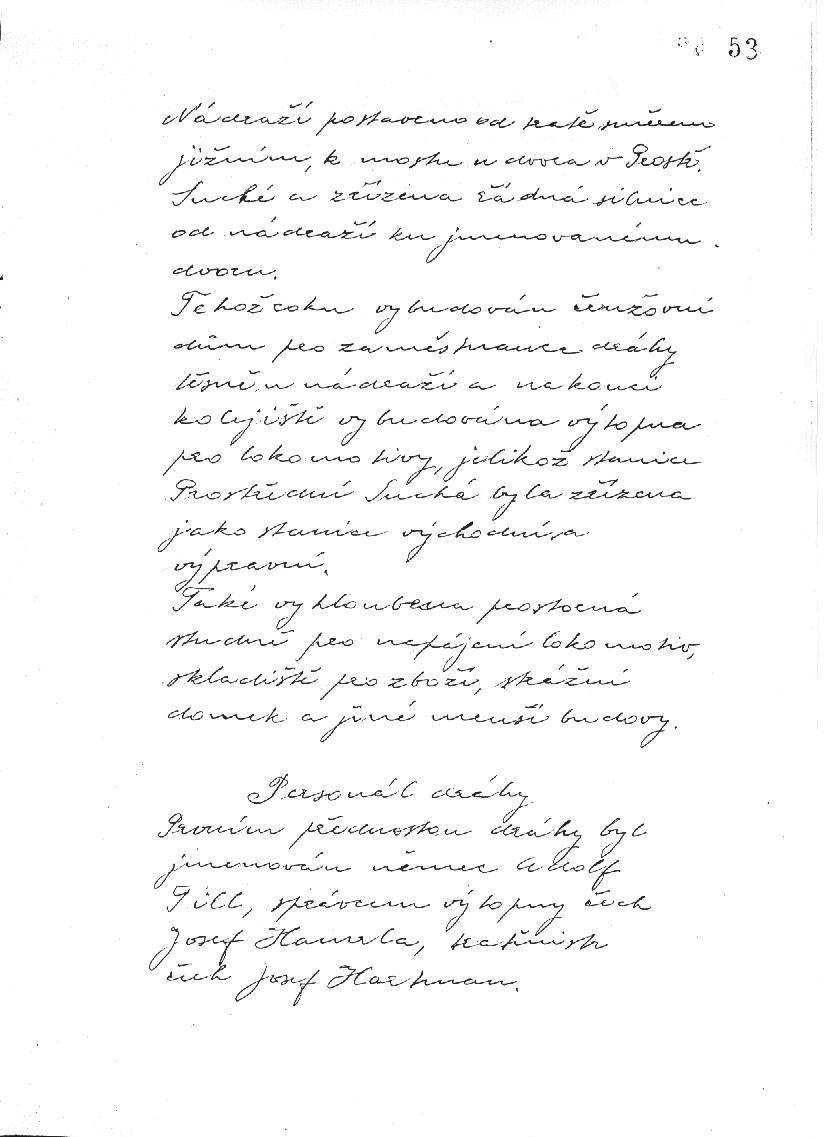 53
Nádraží postaveno od tratě směrem
jižním, k mostu u dvora v Prostř.
Suché a zřízena řádná silnice
od nádraží ku jmenovanému
dvoru.
Téhož roku vybudován činžovní
dům pro zaměstnance dráhy
těsně u nádraží a na konci
kolejiště vybudována výtopna
pro lokomotivy, jelikož stanice
Prostřední Suchá byla zřízena
jako stanice východní a
výpravní.
Také vyhloubena prostorná
studně pro napájení lokomotiv,
skladiště pro zboží, strážní
domek a jiné menší budovy.
Personál dráhy
Prvním přednostou dráhy byl
jmenován němec Adolf
Till, správcem výtopny čech
Josef Hamrla, tratmistr
čech Josef Hartman.